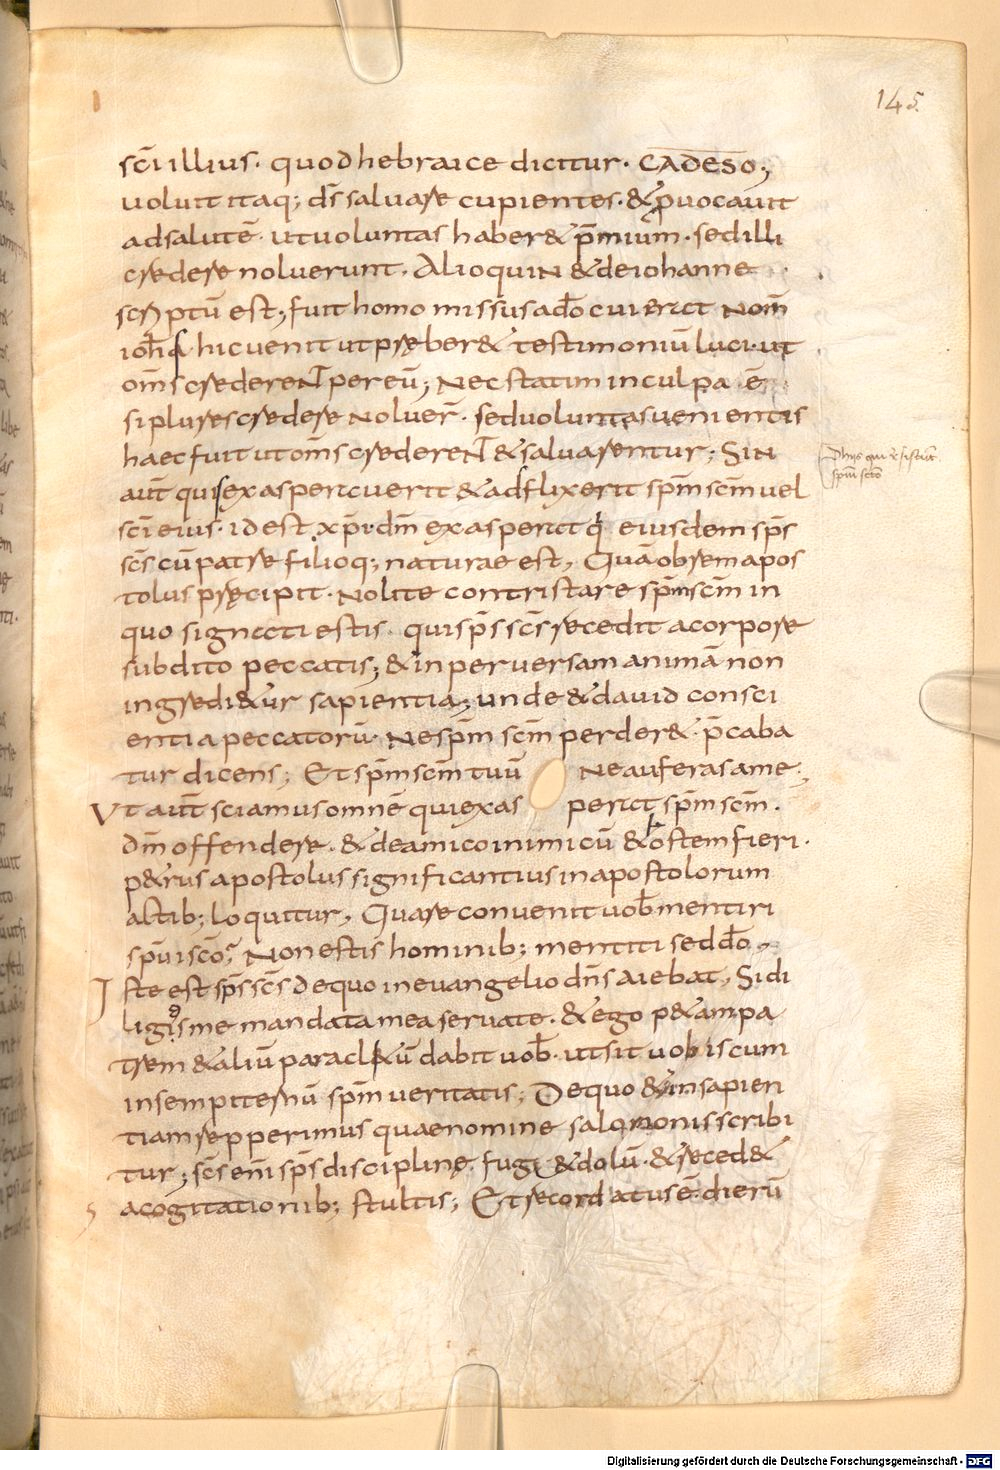 145.
scī illius · quod hebraice dicitur · CADESO;
uoluit itaq; dś saluare cupientes · & ꝓuocauit
ad salutē · ut uoluntas haber& p̄mium · sed illi
credere noluerunt · Alioquin & de iohanne
scriptū est; fuit homo missus a dō cui erat nom̄
ioh̄s hic uenit ut pręber& testimoniū luci · ut
om̄s crederent per eū; Nec statim in culpa · ē
si plures credere noluer̄ · sed uoluntas uenientis
haec fuit ut om̄s crederent & saluarentur; Sin
aut̄ quis exasperauerit & adflixerit sp̄m sc̄m uel
sc̄i eius · id est xp̄i · dm̄ exasperat q eiusdem sp̄s
sc̄s cū patre filioq; naturae est, Quā ob rem apos
tolus pręcipit · Nolite contristare sp̄m sc̄m in
quo signati estis · qui sp̄s sc̄s recedit a corpore
subdito peccatis; & in peruersam animā non
ingredi&ur sapientia; unde & dauid consci
entia peccatorū · Ne sp̄m sc̄m perder& · p̄caba
tur dicens; Et sp̄m sc̄m tuū Ne auferas a me;
Ut aut̄ sciamus omnē qui exas perat sp̄m sc̄m ·
dm̄ offendere · & de amico inimicū & hostem fieri ·
p&rus apostolus significantius in apostolorum
actib; loquitur, Quare conuenit uob̄ mentiri
sp̄ui sc̄o; Non estis hominib; mentiti sed dō,
Iste est sp̄s sc̄s de quo in euangelio dn̄s aiebat, Si di
ligitis me mandata mea seruate · & ego p&am pa
trem & aliū paracl&ū dabit uob̄ · ut sit uobiscum
in sempiternū sp̄m ueritatis; De quo & in sapien
tiam repperimus quae nomine salomonis scribi
tur; sc̄s eni̅ sp̄s disciplinę · fugi& dolū · & reced&
a cogitationib; stultis; Et recordatus ē · dierū
Digitalisierung gefördert durch die Deutsche Forschungsgemeinschaft - DFG